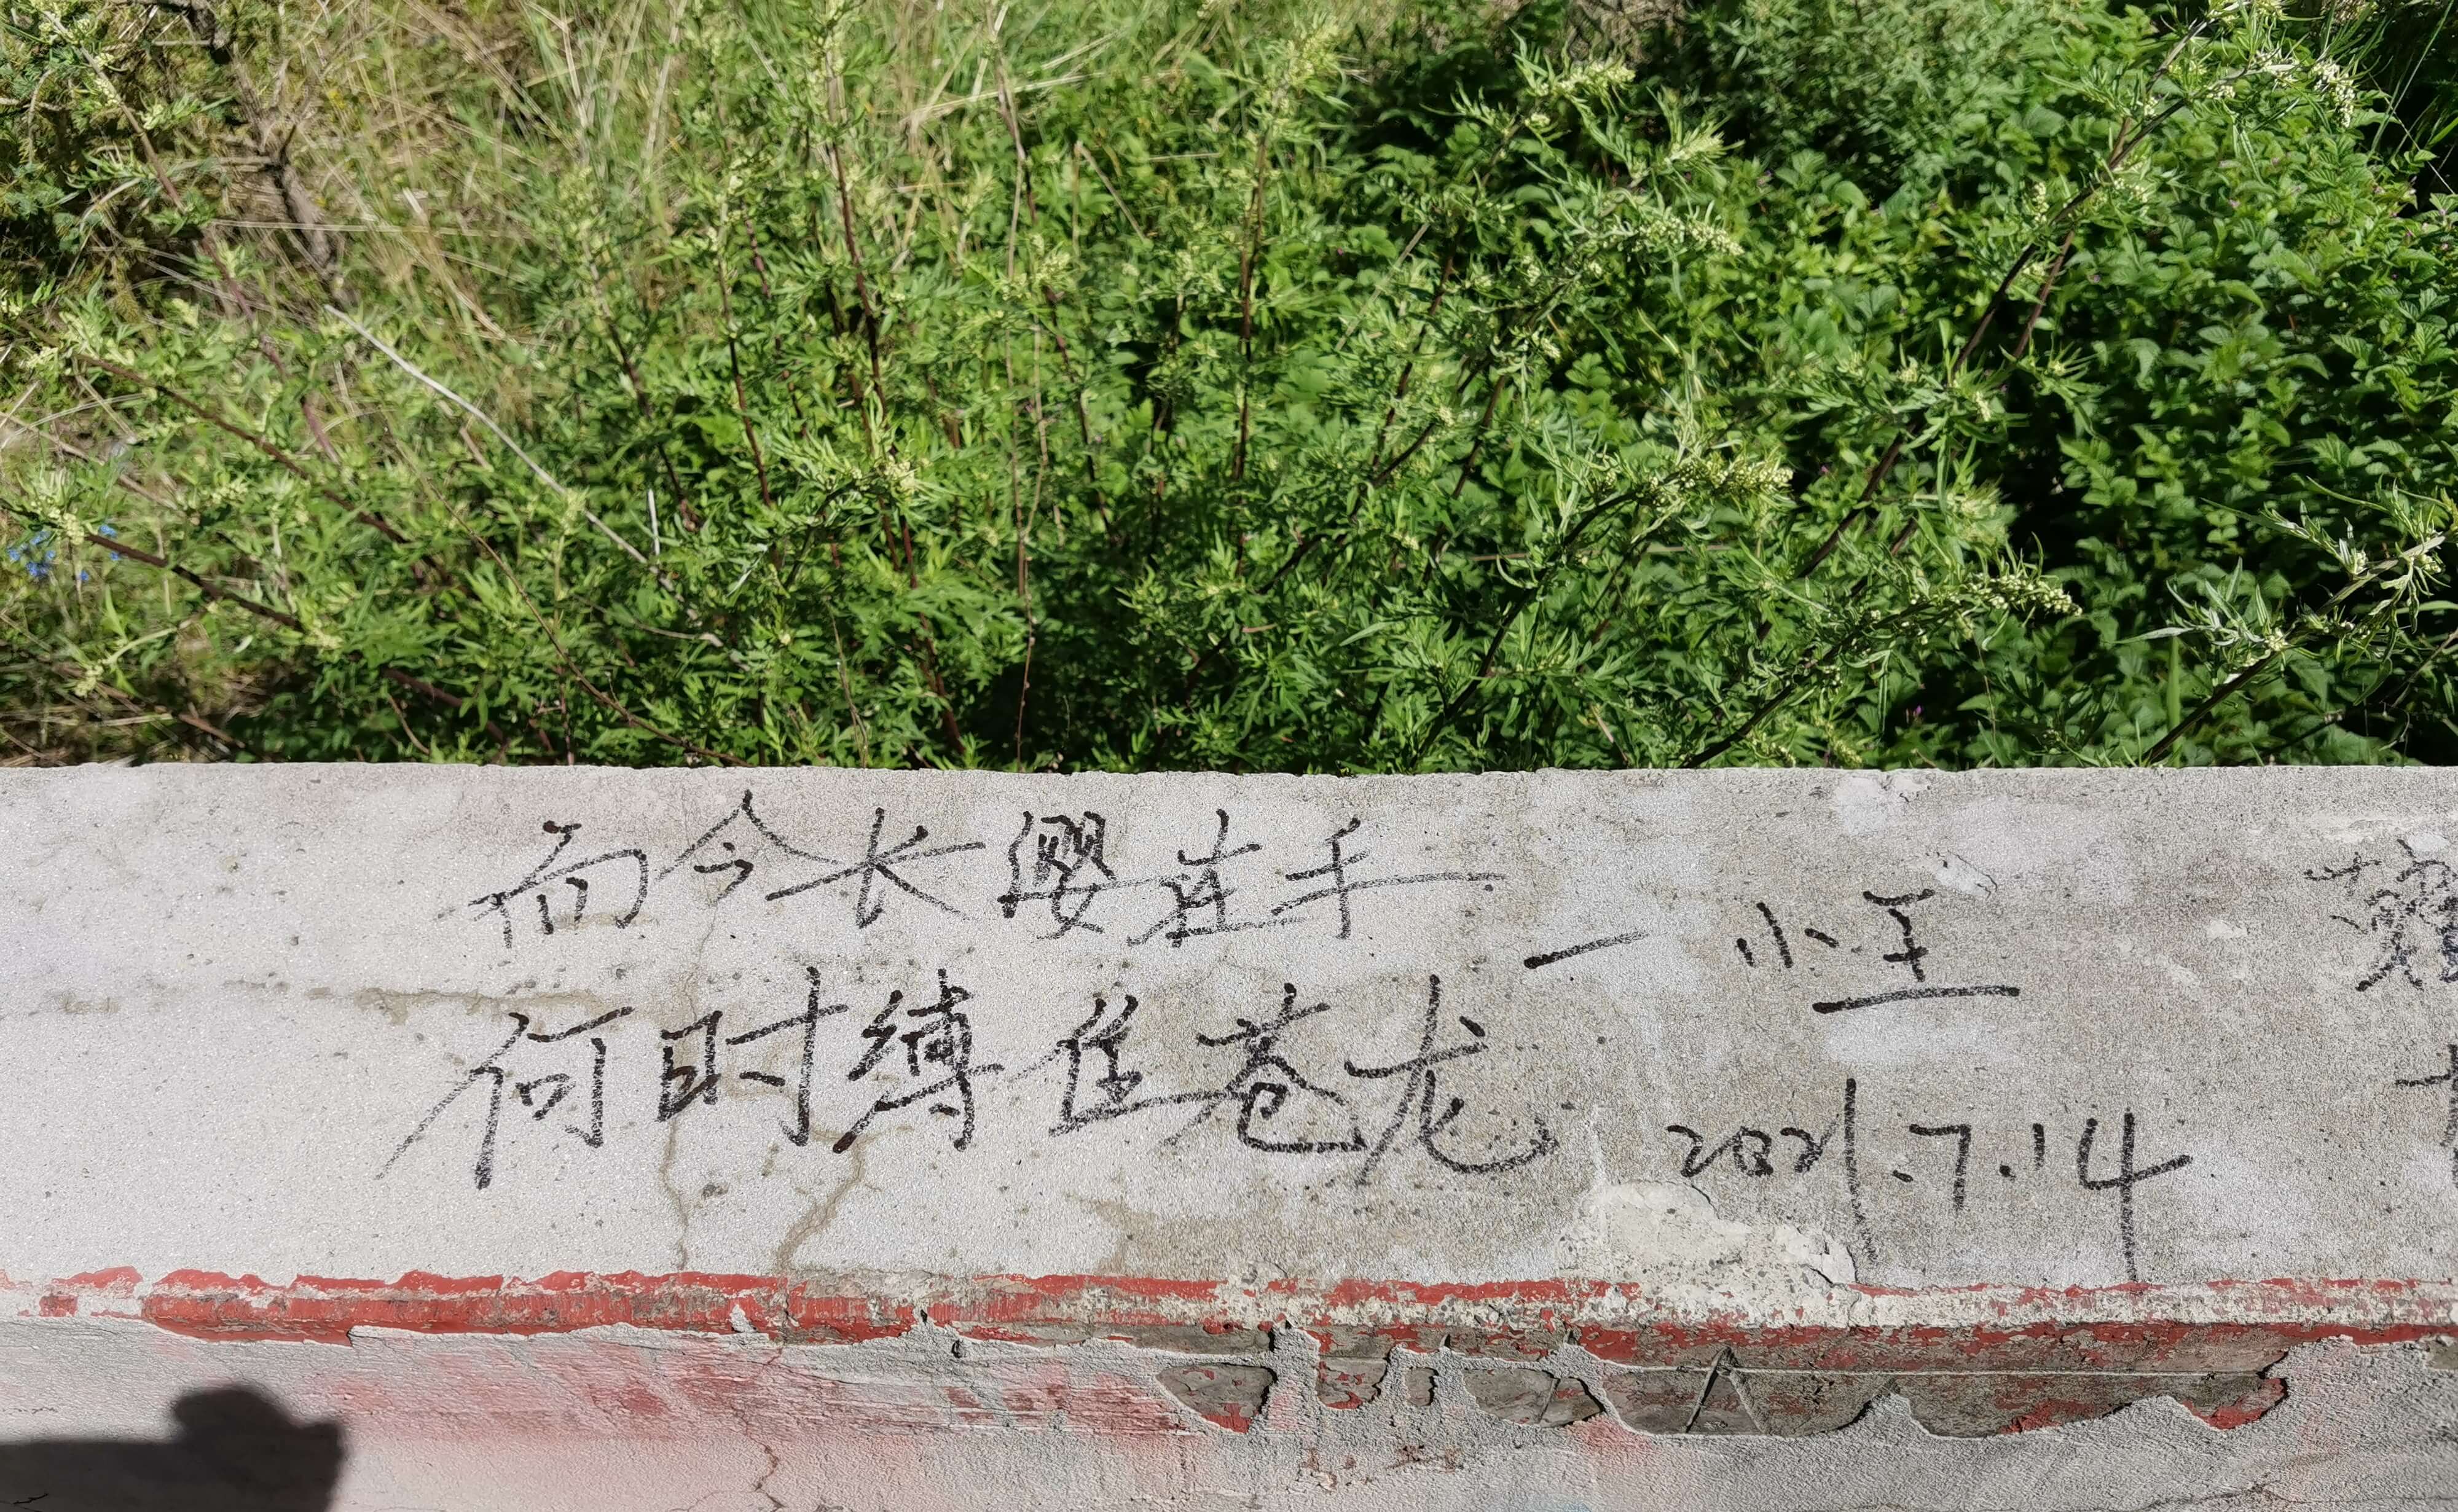 而今长缨在手
何时缚住苍龙
— 小王
2021.7.14